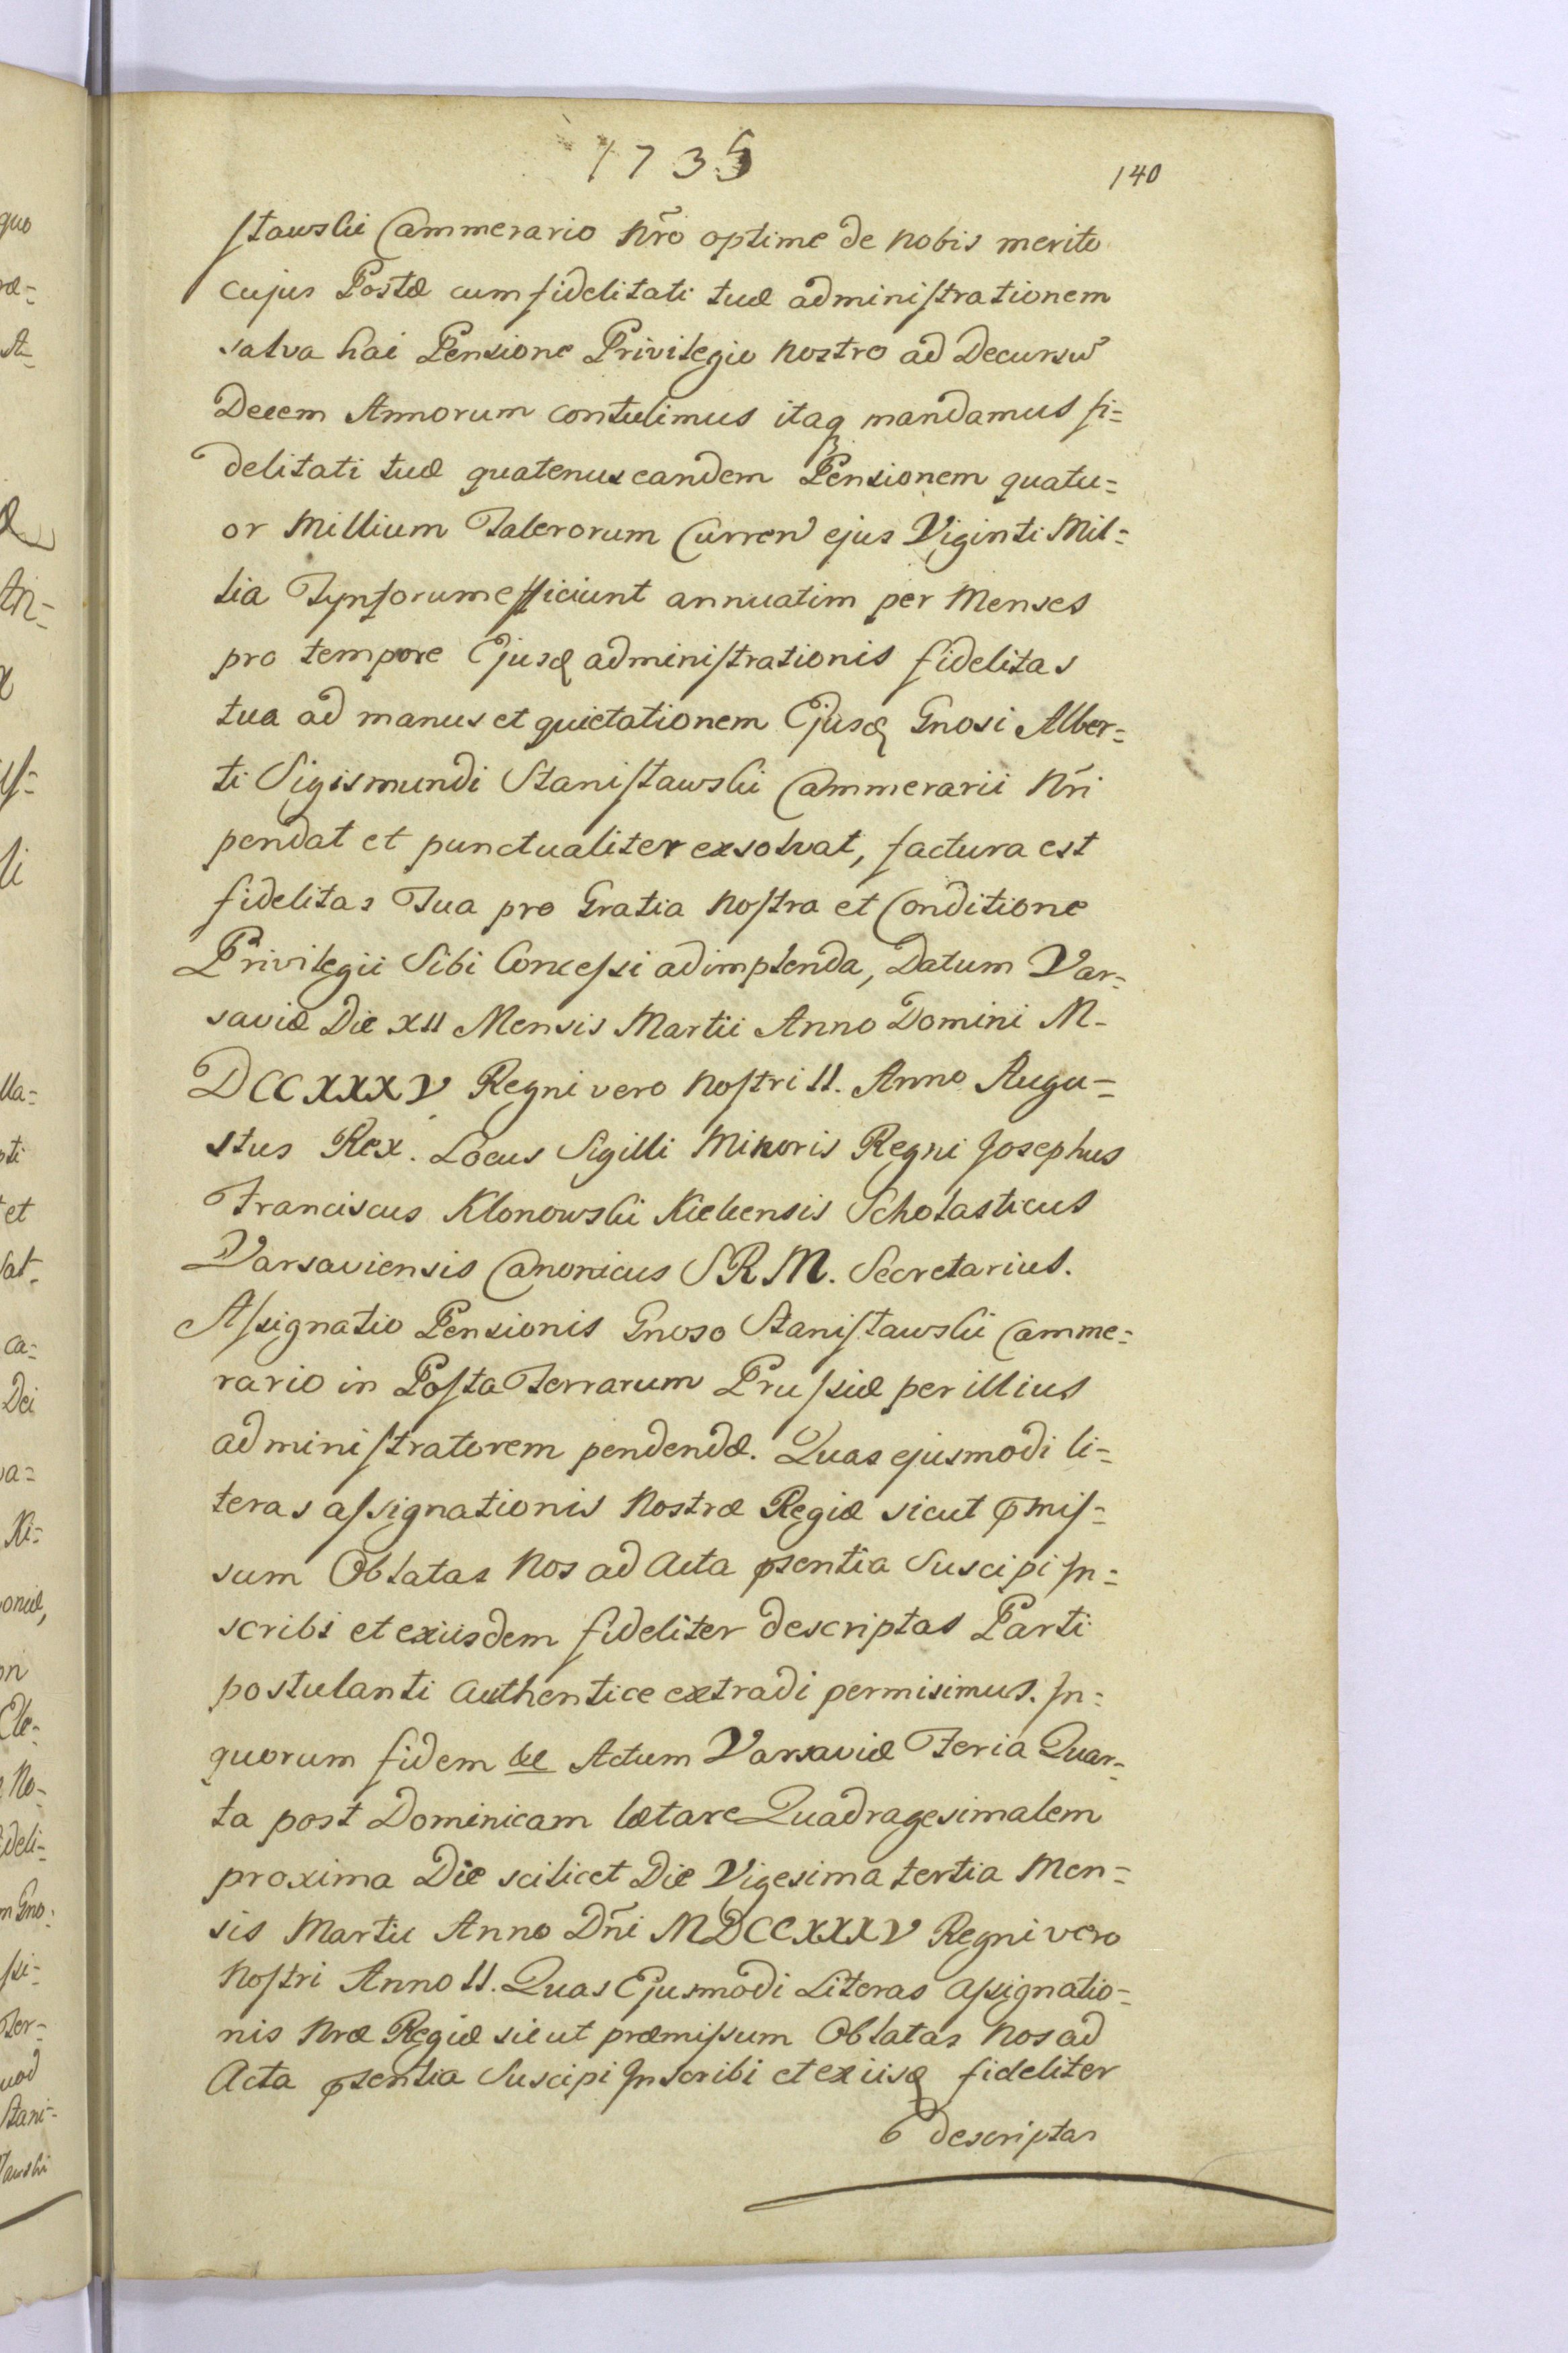 1735
140
stawski Cammerario Nr̃o optime de nobis merito
cujus Postæ cum fidelitati tuæ administrationem
salva hac Pensione Privilegio nostro ad Decursũ
Decem Annorum contulimus itaq mandamus fi=
delitati tuæ quatenus eandem Pensionem quatu=
or Millium Talerorum Curren ejus Viginti Mil=
lia Tynforum efficiunt annuatim per Menses
pro tempore Ejusd administrationis fidelitas
tua ad manus et quietationem Ejusd Gnosi Alber=
ti Sigismundi Stanisławski Cammerarii Nr̃i
pendat et punctualiter exsolvat, factura est
fidelitas Tua pro Gratia Nostra et Conditione
Privilegii Sibi Concessi adimplenda, Datum Var=
saviæ Die XII Mensis Martii Anno Domini M-
DCCXXXV Regni vero Nostri II. Anno Augu=
stus Rex. Locus Sigilli Minoris Regni Josephus
Franciscus Klonowski Kielensis Scholasticus
Varsaviensis Canonicus S R M. Secretarius.
Assignatio Pensionis Gnoso Stanisławski Camme=
rario in Posta Terrarum Prussiæ per illius
administratorem pendendæ. Quas ejusmodi li=
teras assignationis Nostræ Regiæ sicut pmis=
sum Oblatas Nos ad Acta psentia Suscipi In=
scribi et exiisdem fideliter descriptas Parti
postulanti authentice extradi permisimus. In=
quorum fidem &c Actum Varsaviæ Feria Quar=
ta post Dominicam lætare Quadragesimalem
proxima Die scilicet Die Vigesima tertia Men=
sis Martii Anno Dñi MDCCXXXV Regni vero
Nostri Anno II. Quas Ejusmodi Literas assignatio=
nis Nræ Regiæ sicut præmissum Oblatas Nos ad
Acta psentia Suscipi Inscribi et ex iisd fideliter
descriptas